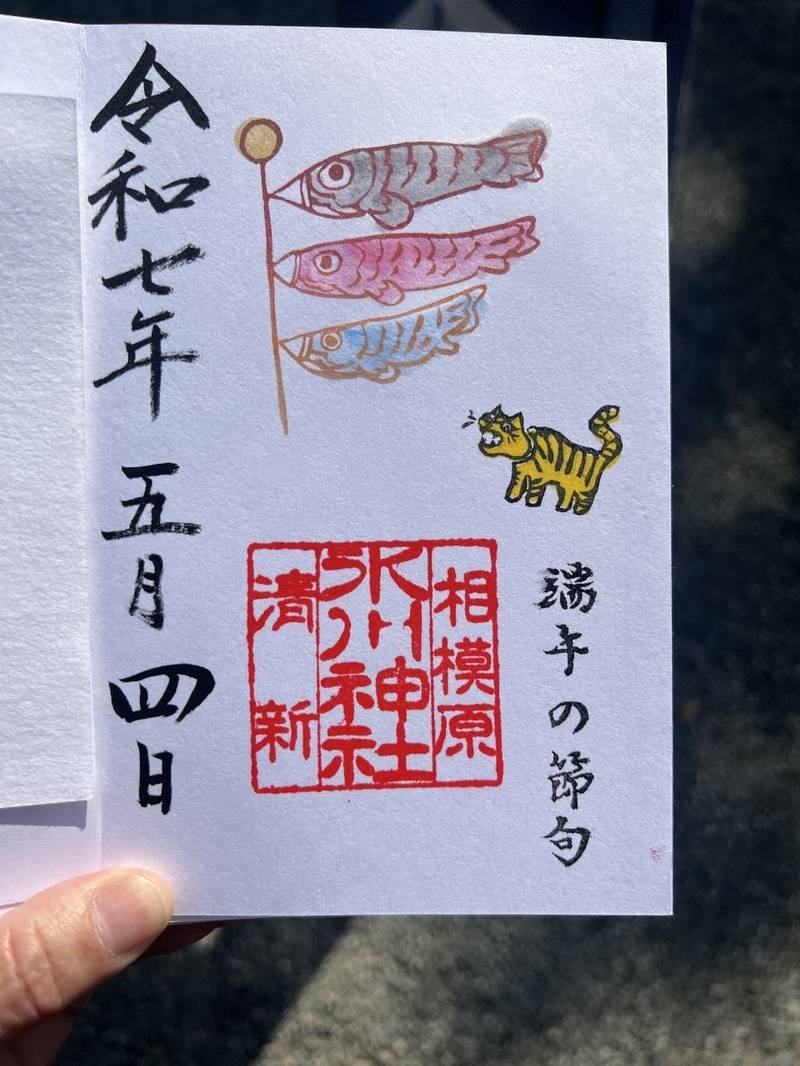 端午の節句
相模原
氷川神社
清新
令和七年 五月 四日